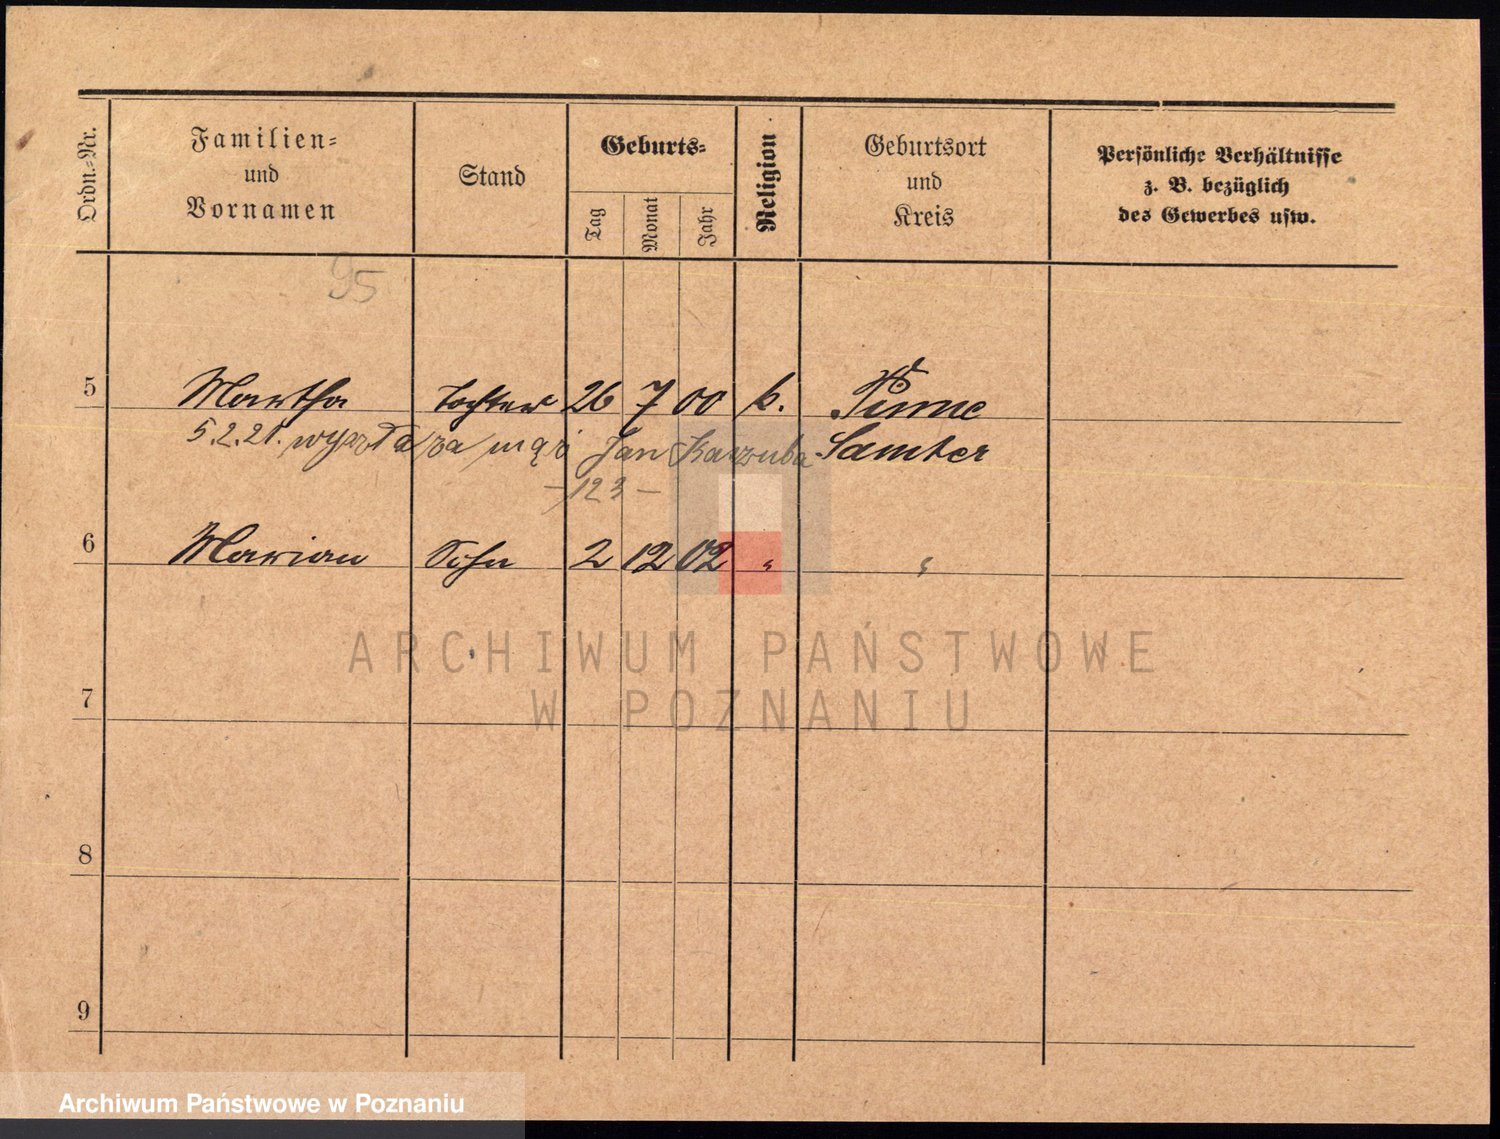 Ordn.=Nr.
Familien=
und
Vornamen
Stand
Geburts=
Tag
Monat
Jahr
Religion
Geburtsort
und
Kreis
Persönliche Verhältnisse
z. B. bezüglich
des Gewerbes usw.
95
5 Martha Tochter 26 7 00 k. Pinne
5.2.21. wyszła za mąż Jan Karzuba Samter
-123-
6 Marian Sohn 2 12 02 " "
7
8
9
ARCHIWUM PAŃSTWOWE
W POZNANIU
Archiwum Państwowe w Poznaniu